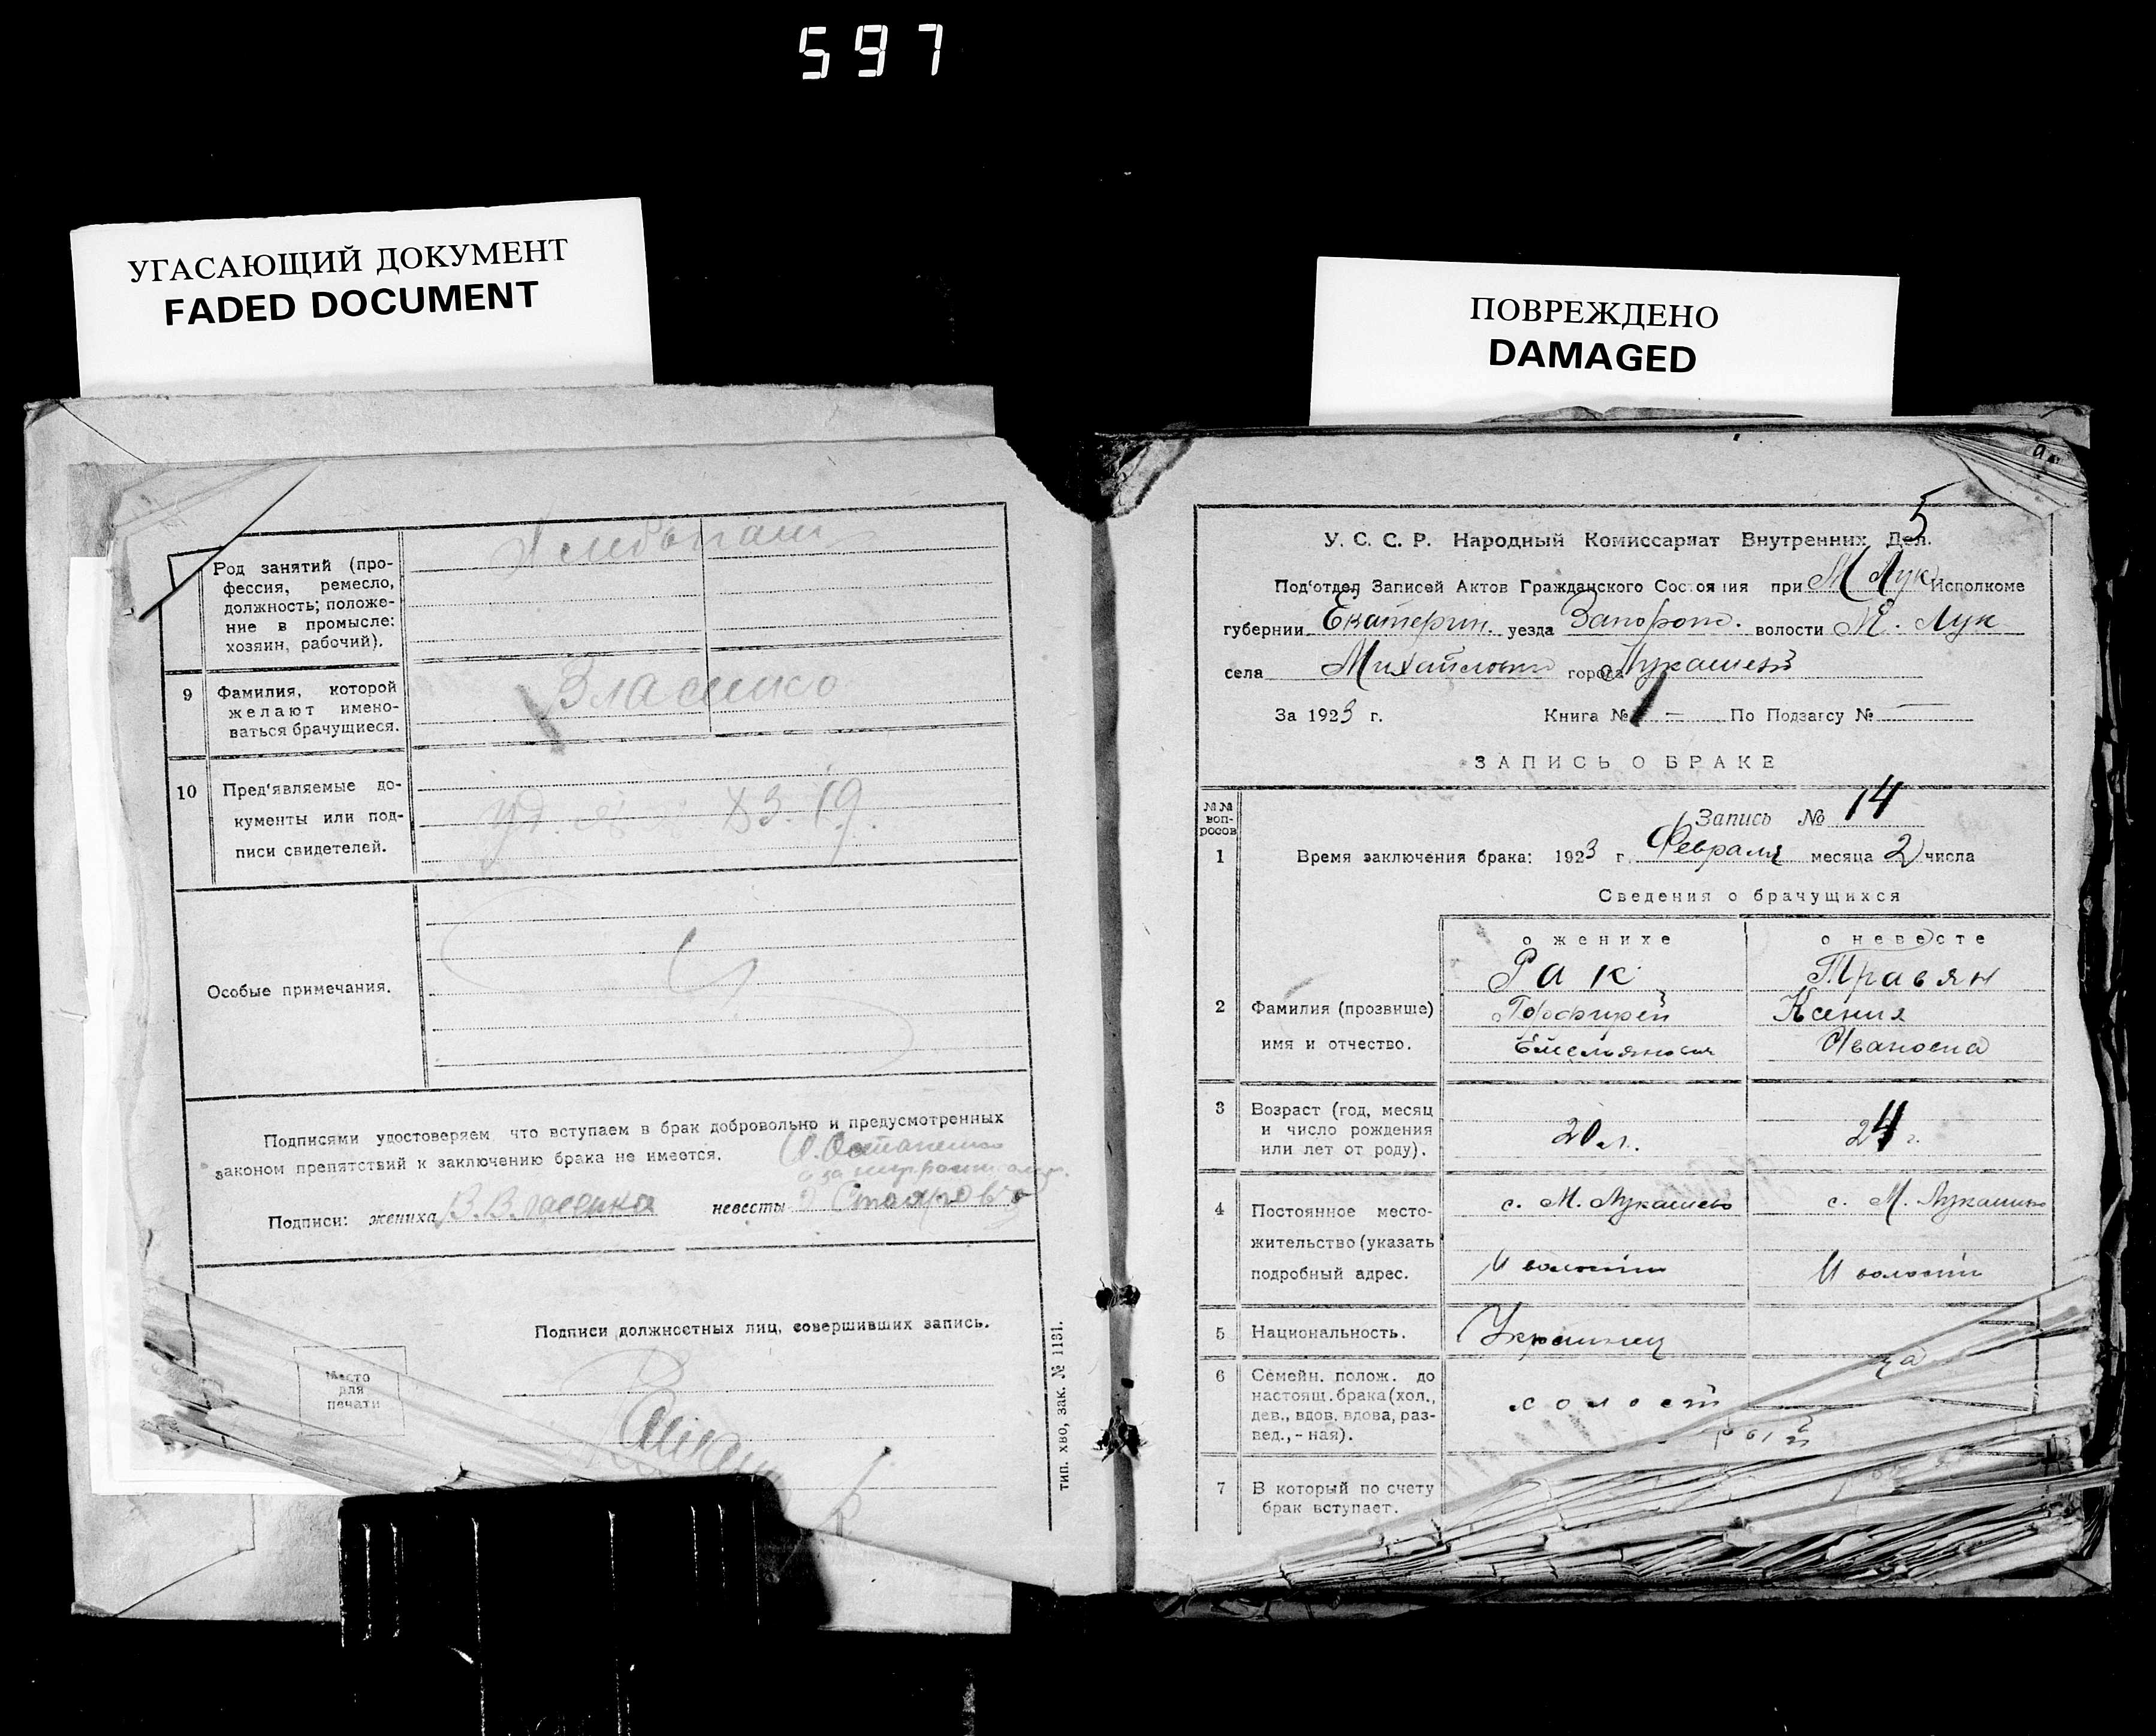 597
УГАСАЮЩИЙ ДОКУМЕНТ
FADED DOCUMENT
ПОВРЕЖДЕНО
DAMAGED
Род занятий (про-
фессия, ремесло,
должность; положе-
ние в промысле:
хозяин, рабочий).
9 Фамилия, которой
желают имено-
ваться брачущиеся.
Власенко
10 Пред‘являемые до-
кументы или под-
писи свидетелей.
Особые примечания.
Подписями удостоверяем что вступаем в брак добровольно и предусмотренных
законом препятствий к заключению брака не имеется.
Подписи: жениха В. Власенко невесты
Подписи должностных лиц, совершивших запись.
Место
для
печати
тип. хво, зак. № 1131.
5
У. С. С. Р. Народный Комиссариат Внутренних Дел.
Под‘отдел Записей Актов Гражданского Состояния при М Лук Исполкоме
губернии Екатерин. уезда Запорож. волости М. Лук
села Михайловки города Лукашев
За 1923 г. Книга № 1 — По Подзагсу № —
ЗАПИСЬ О БРАКЕ
№№
воп-
росов
Запись № 14
1 Время заключения брака: 1923 г. Февраля месяца 2 числа
Сведения о брачущихся
о женихе о невесте
Рак Травян
2 Фамилия (прозвище) Порфирей Ксения
имя и отчество. Емельянович Ивановна
3 Возраст (год, месяц
и число рождения
или лет от роду). 20 л. 24 г.
4 Постоянное место-
жительство (указать
подробный адрес.
с. М. Лукашево с. М. Лукашево
И волости И волости
5 Национальность. Украинец ка
6 Семейн. полож. до
настоящ. брака (хол.,
дев., вдов. вдова, раз-
вед., - ная).
холост
7 В который по счету
брак вступает.